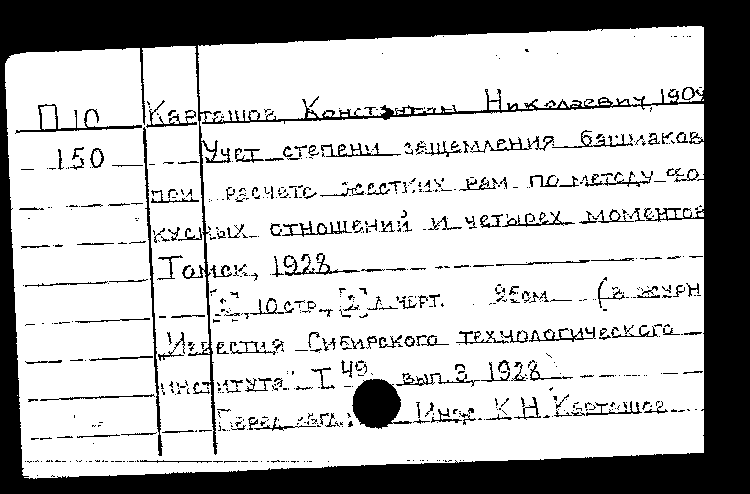 П 10 Карташов, Константин Николаевич, 190
150 Учет степени защемления башмаков
при расчете жестких рам по методу фо-
кусных отношений и четырех моментов
Томск, 1928
10 стр., [2] л. черт. 25см (в журн
"Известия Сибирского технологического
института". Т. 49 вып 3, 1928)
Перед загл.: Инж К.Н. Карташов